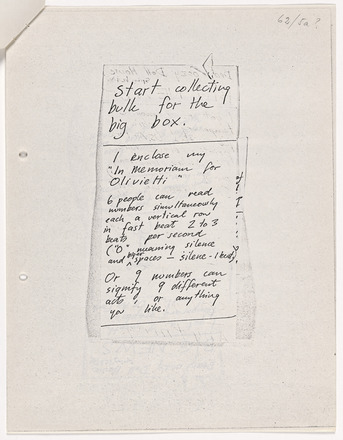 62/5a?
start collecting
bulk for the
big box.
I enclose my
"In Memoriam for
Olivietti"
6 people can read
numbers simultaneously
each a vertical row
in fast beat 2 to 3
beats per second
("0" meaning silence
and spaces — silence - 1 beat)
Or 9 numbers can
signify 9 different
acts, or anything
you like.